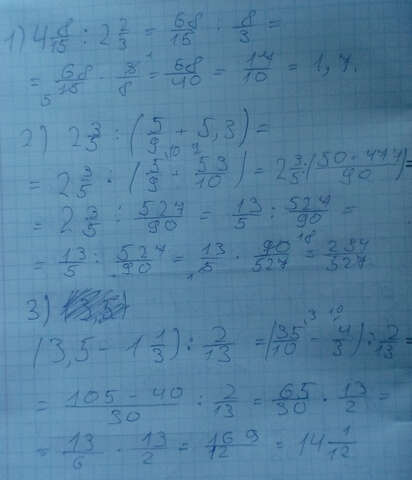 1) 4 8/15 : 2 2/3 = 68/15 · 8/3 =
= 68/15 · 3/8 = 68/40 = 17/10 = 1,7.
2) 2 3/5 : (5/9 + 5,3) =
= 2 3/5 : (5/9 + 53/10) = 2 3/5 : (50 + 477/90) =
= 2 3/5 : 527/90 = 13/5 : 527/90 =
= 13/5 : 527/90 = 13/5 · 90/527 = 234/527
3)
(3,5 - 1 1/3) : 2/13 = (35/10 - 4/3) : 2/13 =
= 105 - 40/30 : 2/13 = 65/30 · 13/2 =
= 13/6 · 13/2 = 169/12 = 14 1/12